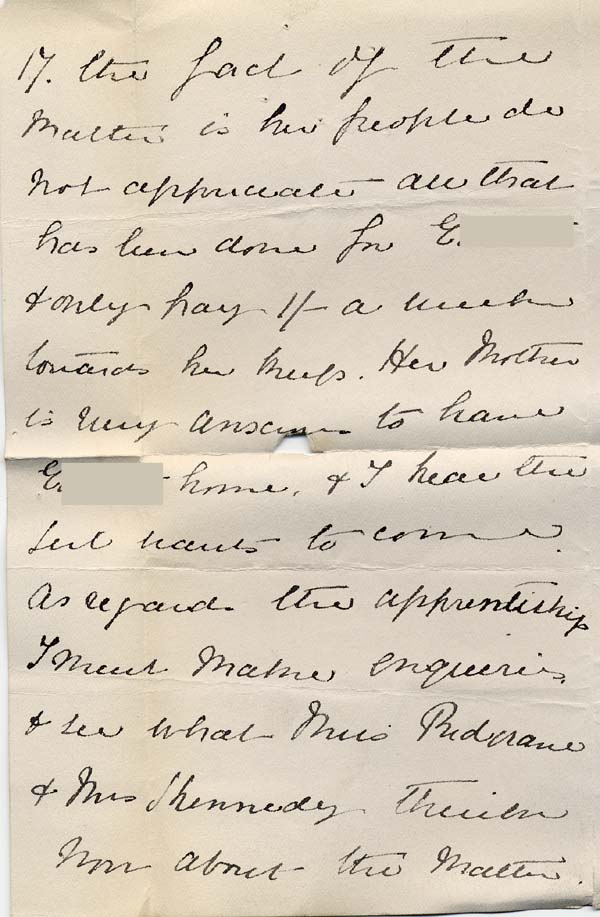 it. the fact of the
Matter is her people do
not appreciate all that
has been done for E.
& only pay 1/- a week
towards her keep. Her Mother
is very anxious to have
E. home, & I hear the
girl wants to come.
As regards the apprentiship
I must make enqueries,
& see what Miss Redgrave
& Mrs Shennedy think
now about the Matter.